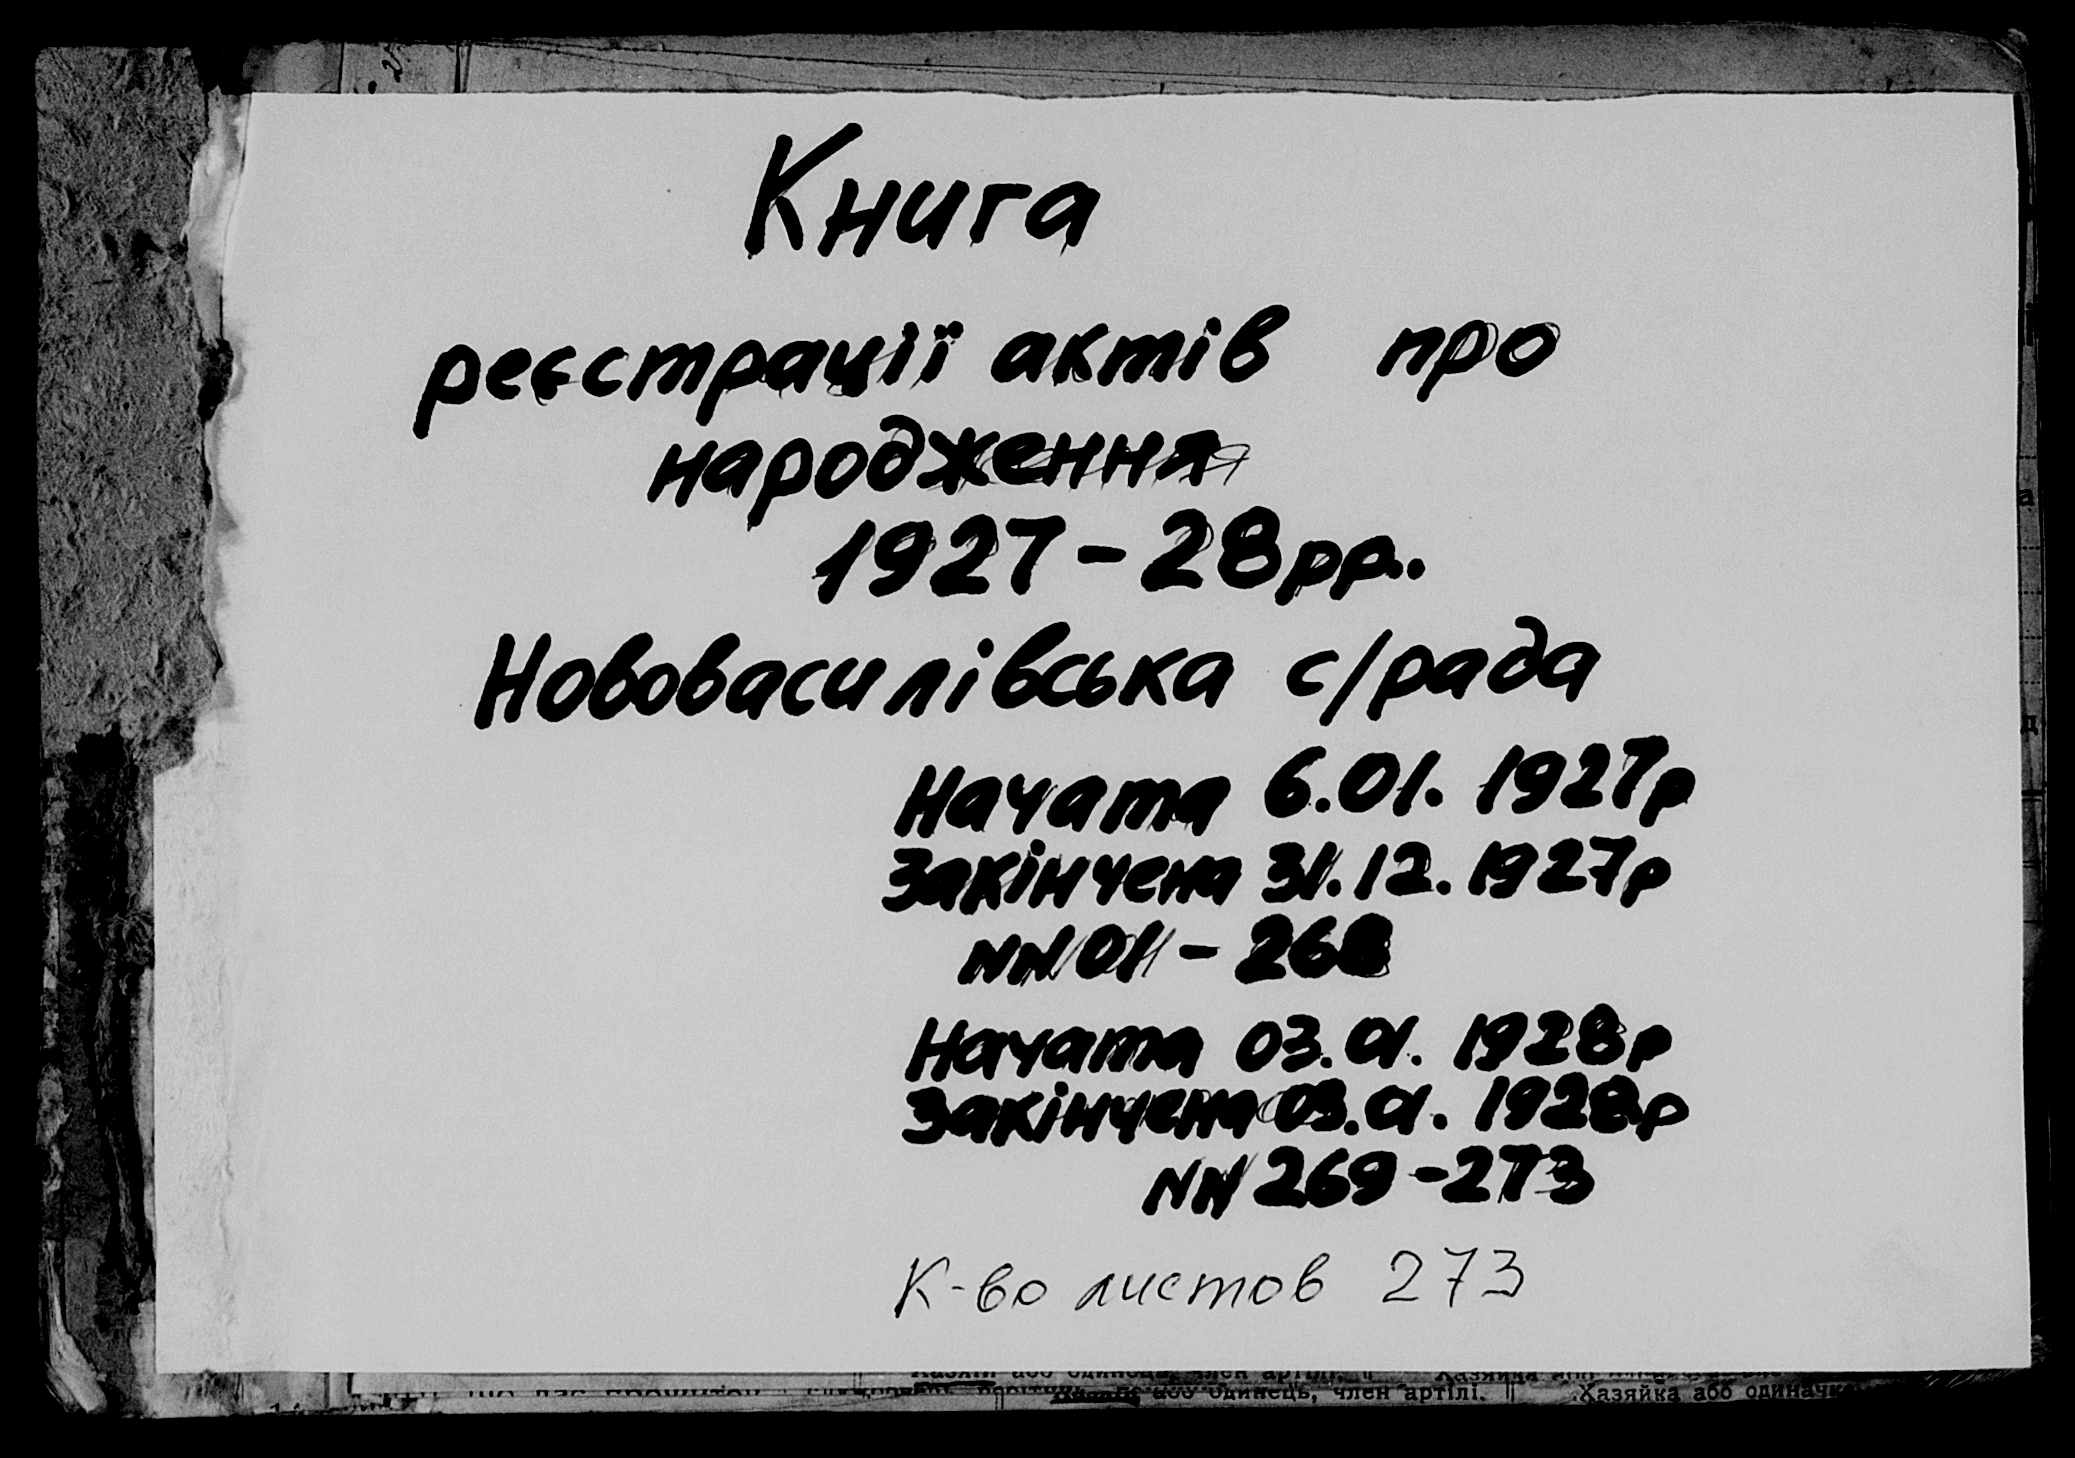 Книга
реєстрації актів про
народження
1927-28рр.
Нововасилівська с/рада
Начата 6.01.1927р
Закінчена 31.12.1927р
NN 01-268
Начата 03.01.1928р
Закінчена 03.01.1928р
NN 269-273
К-во листов 273
або одинець, член артілі. Хазяйка або